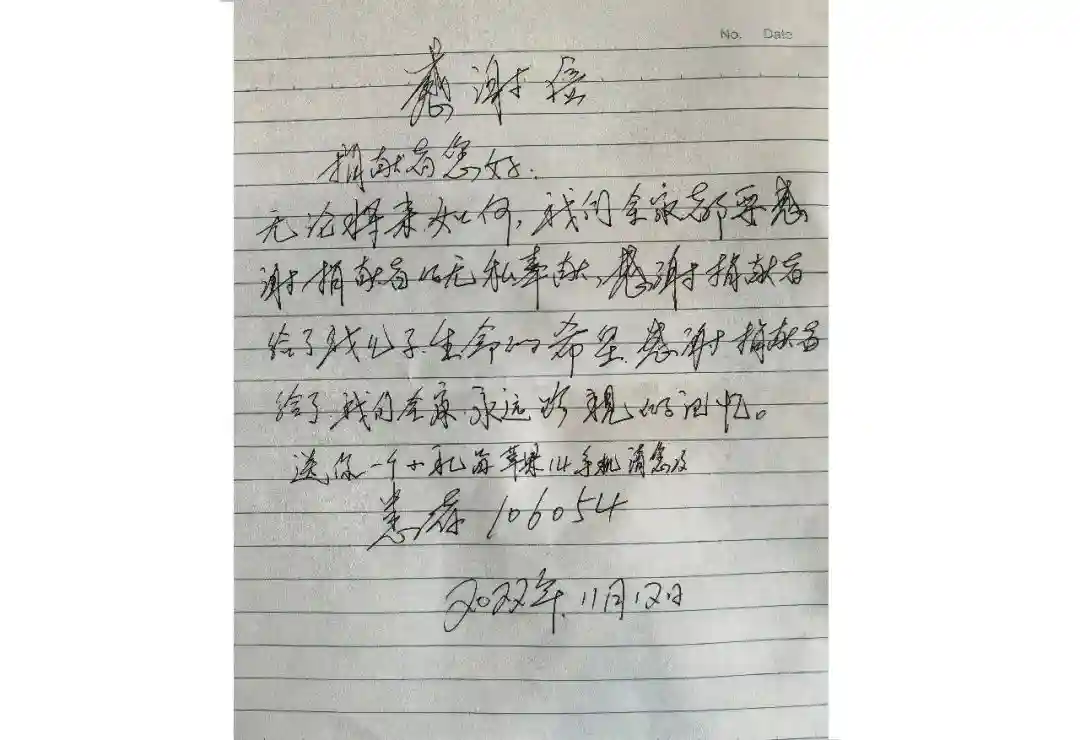 No. Date
感谢信
捐献者您好.
无论将来如何，我们全家都要感
谢捐献者的无私奉献、感谢捐献者
给了我儿子生命的希望.感谢捐献者
给了我们全家永远珍视的回忆。
送你一个小礼苹果14手机请您
惠存106054
2022年.11月12日